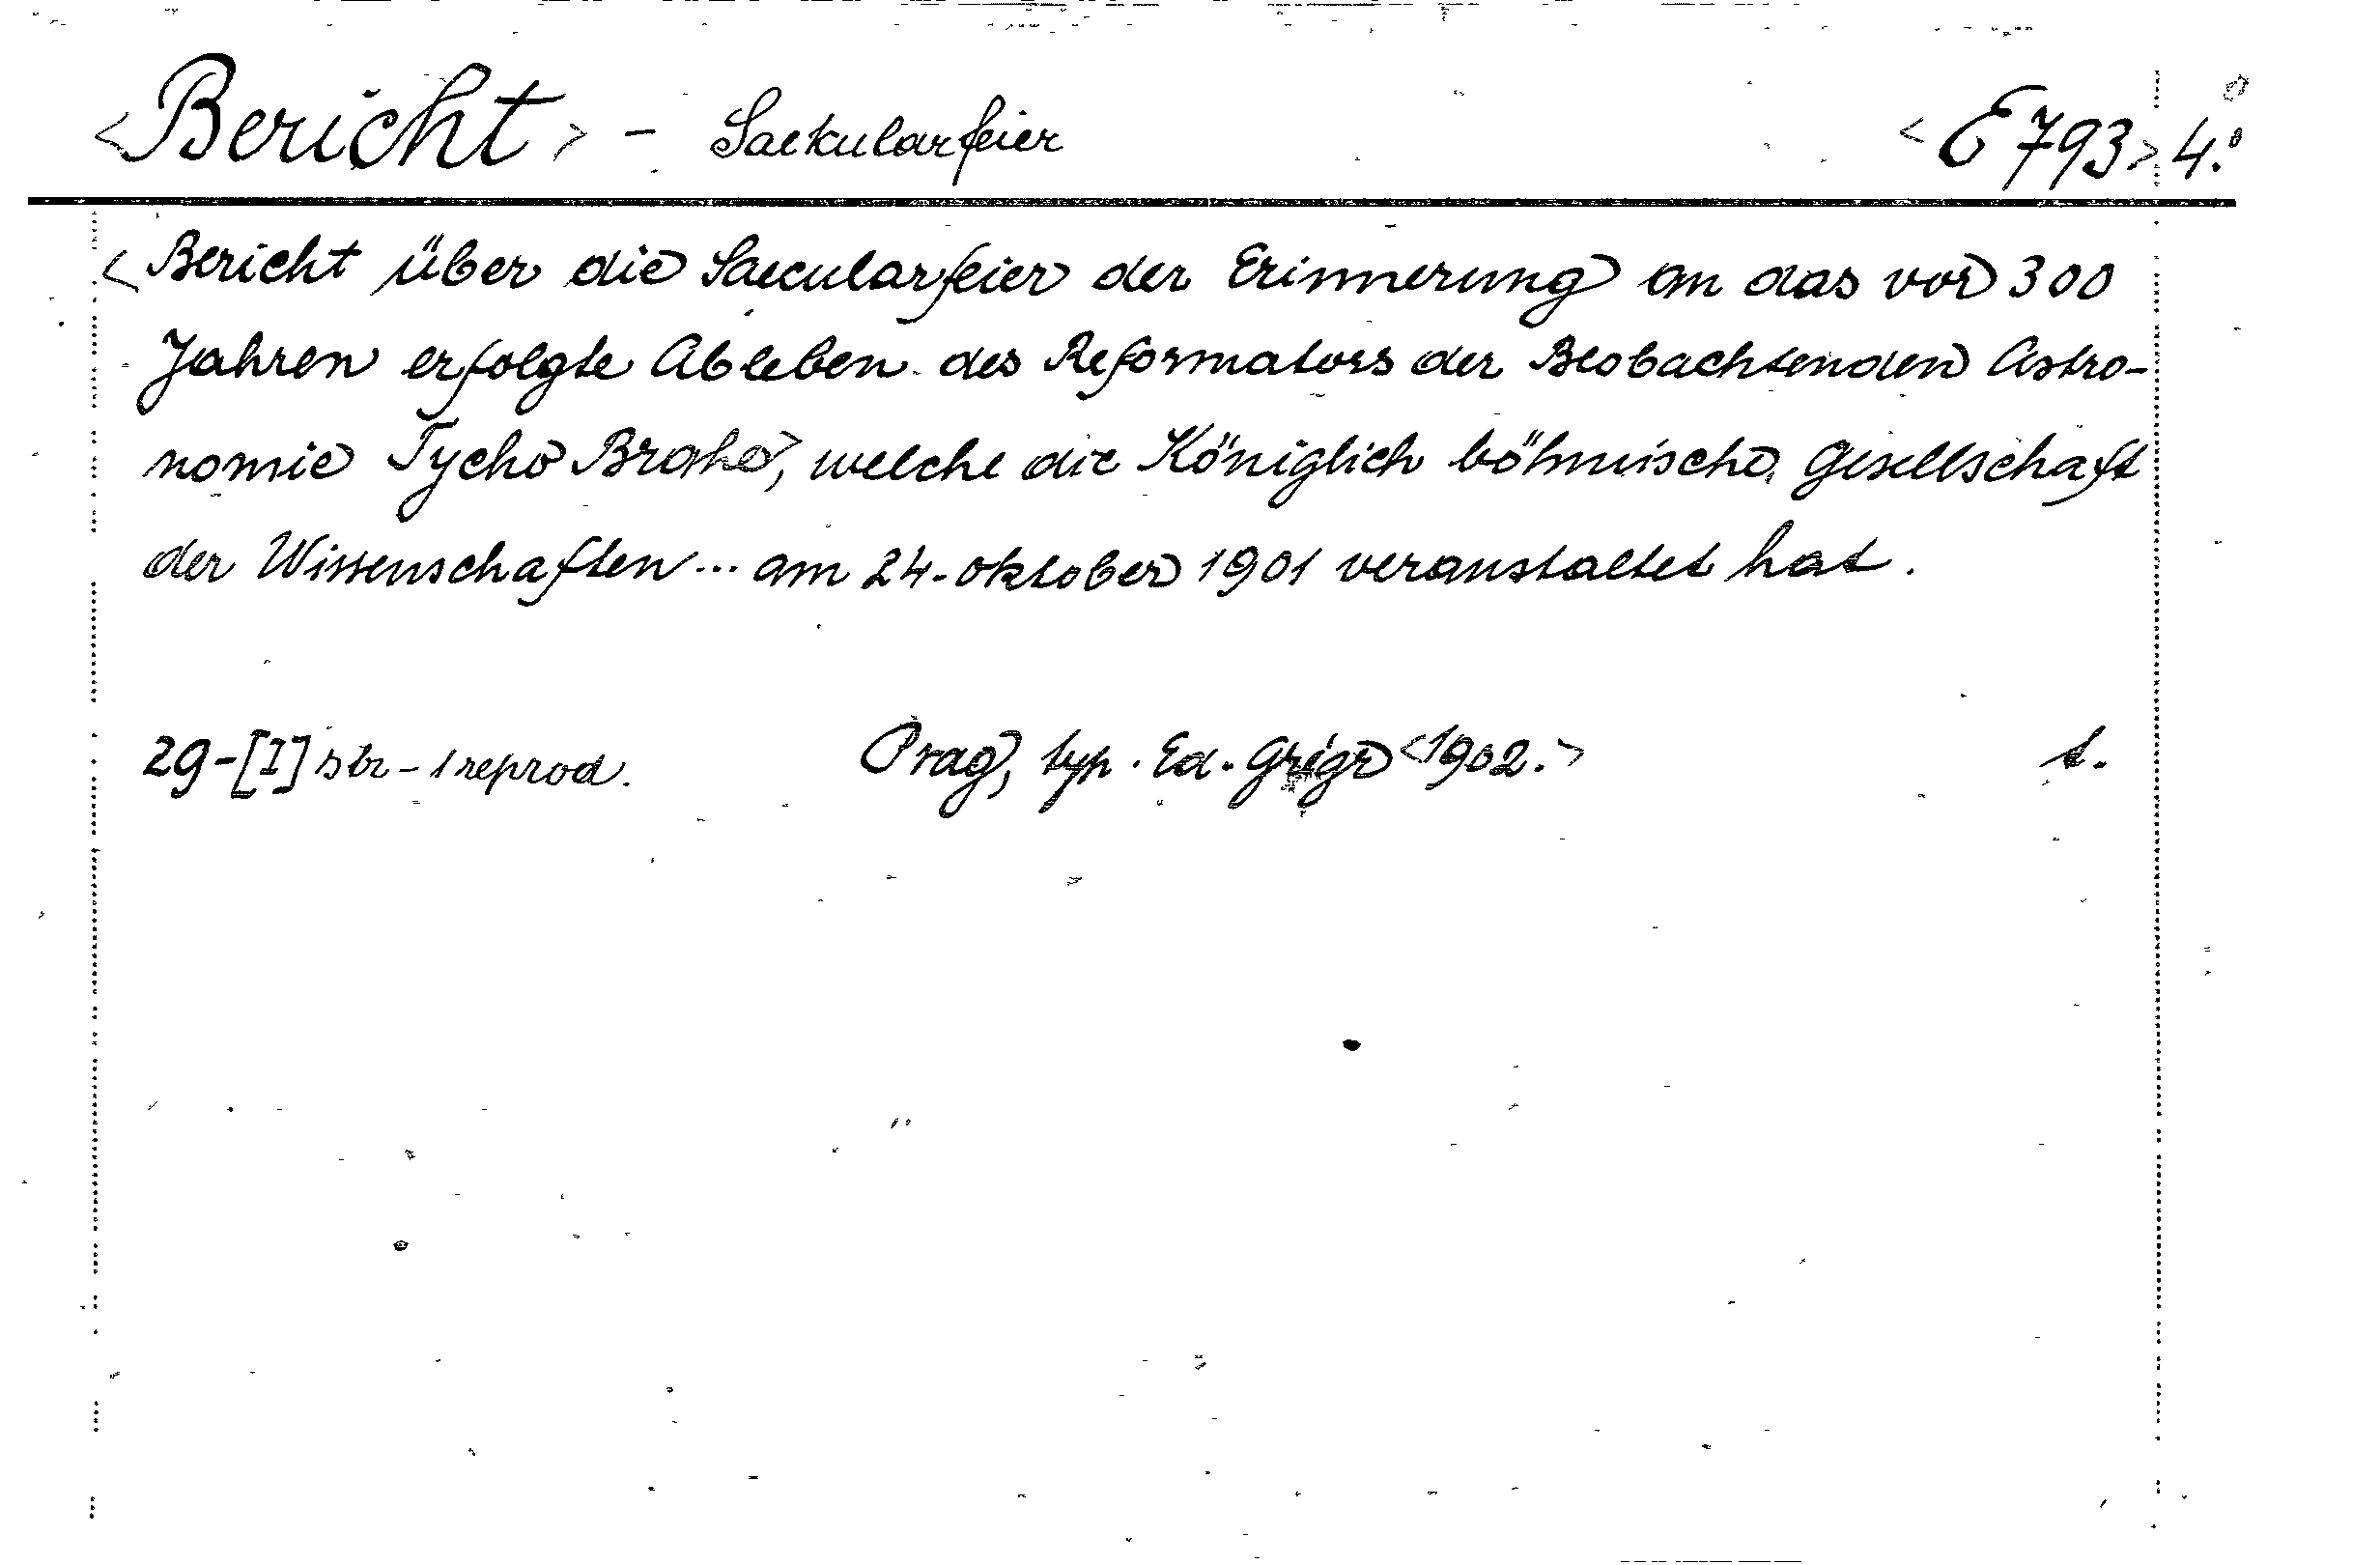 <Bericht> - Saekularfeier <E 793> 4.°
<Bericht über die Saecularfeier der Erinnerung an das vor 300
Jahren erfolgte Ableben des Reformators der Beobachtenden Astro-
nomie Tycho Brahe, welche die Königlich böhmische Gesellschaft
der Wissenschaften ... am 24. oktober 1901 veranstaltet hat.
29-[I] str - 1 reprod. Prag, typ. Ed. Grégr <1902.> t.